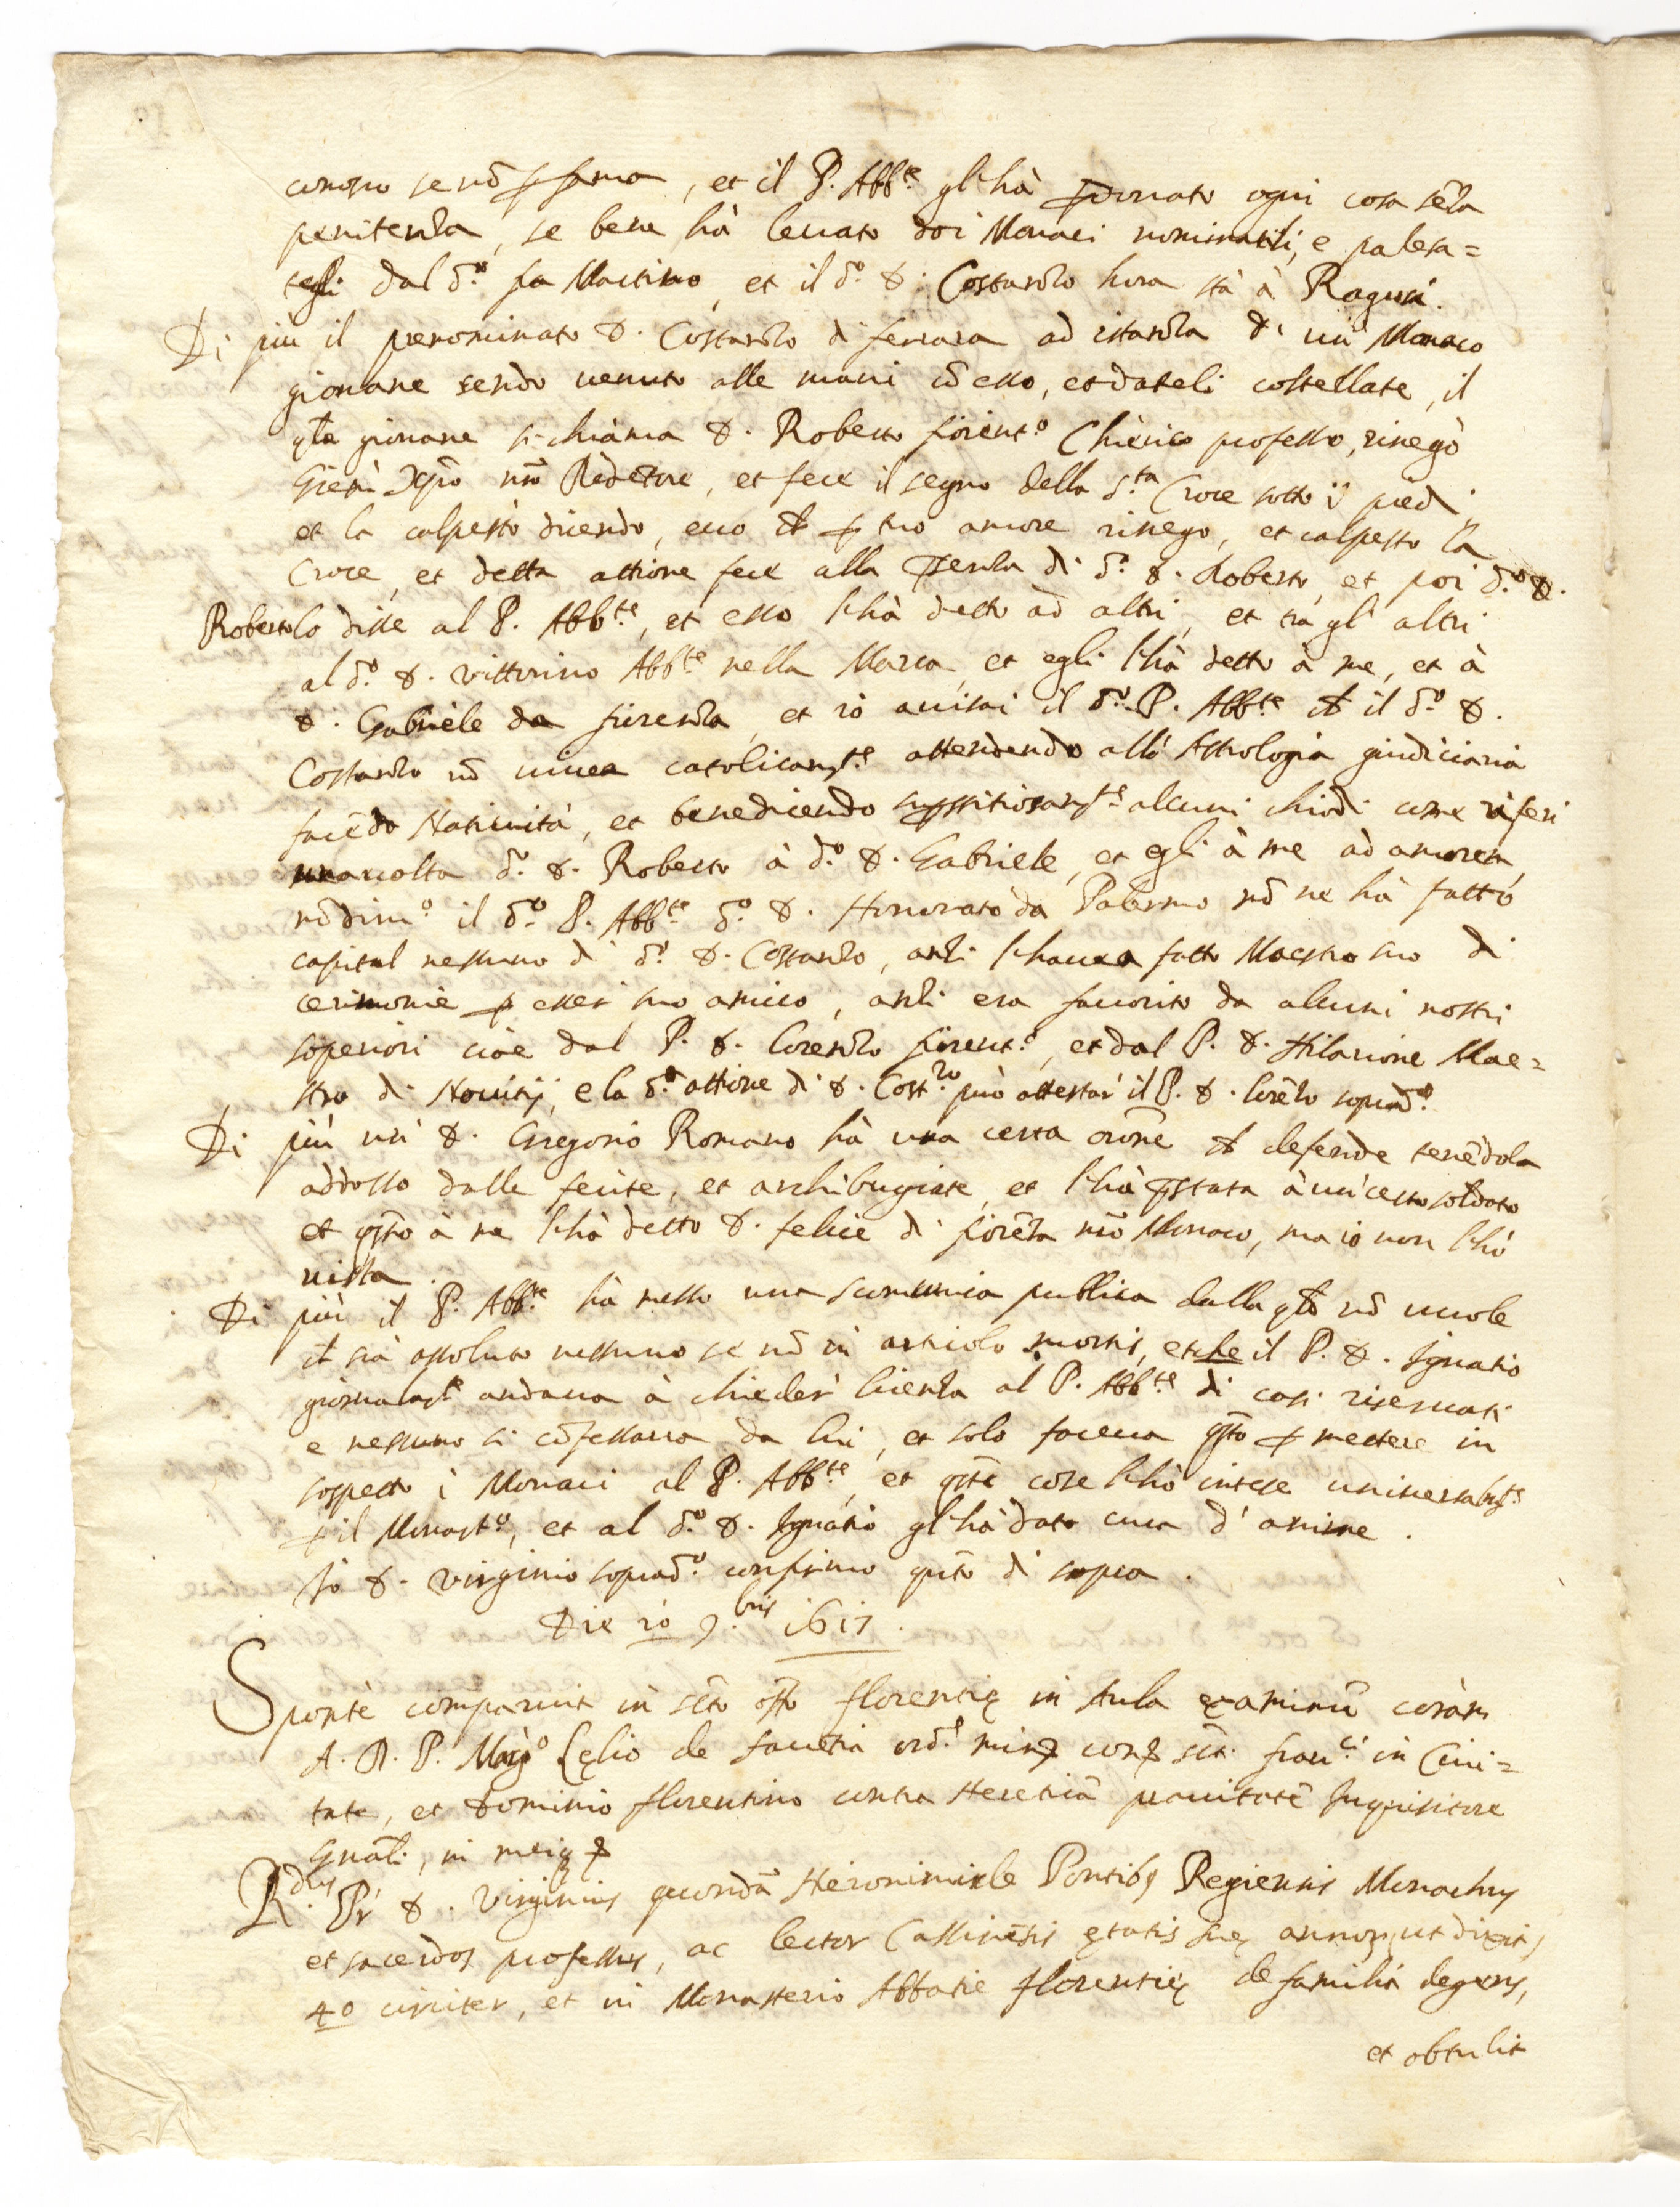 se nõ fama, et il P. Abb.te gl'hà ꝑdonato ogni cosa sẽza
penitenza, se bene hà leuato doi Monaci nominatili, e palesa=
tegli dal d.o fra Martino, et il d.o D. Costanzo hora stà à Ragusi.
Di più il prenominato D. Costanzo di ferrara ad istanza di un Monaco
giouane sendo uenuto alle mani cõ esso, et dateli coltellate, il
qle giouane si chiama D. Roberto fiorent.o Chierico professo, rinegò
Giesù Xp̃o nr̃o Redẽtore, et fece il segno della S.ta Croce sotto i piedi
et la calpestò dicendo, ecco ch ꝑ tuo amore rinego, et calpesto la
Croce, et detta attione fece alla p̃senza di d.o D. Roberto, et poi d.o D.
Roberto lo disse al P. Abb.te, et esso l'hà detto ad altri, et trà gl'altri
al d.o D. Vittorino Abb.te nella Marca, et egli l'hà detto à me, et à
D. Gabriele da fiorenza, et io auisai il d.o P. Abb.te ch il d.o D.
Costanzo nõ uiuea catolicamte attendendo all'Astrologia giudiciaria
facẽdo Natiuità, et benedicendo supstitiosamte alcuni chiodi come riferi
una uolta d.o D. Roberto à d.o D. Gabriele, et egli à me ad
nõdim.o il d.o P. Abb.te d.o D. Honorato da Palermo nõ ne hà fatto
capital nessuno di d.o D. Costanzo, anzi l'hauea fatto Maestro suo di
cerimonie ꝑ esser suo amico, anzi era fauorito da alcuni nostri
soperiori cioè dal P. D. Lorenzo fiorent.o, et dal P. D. Hilarione Mae=
stro di Nouitij, e la d.a attione di D. Cost.zo può attestar il P. D. Lorẽzo soprad.o
Di più un D. Gregorio Romano hà una certa orõne ch defende tenẽdola
addosso dalle ferite, et archibugiate, et l'hà p̃stata à un certo soldato
et q̃sto à me l'hà detto D. felice di fiorẽza nr̃o Monaco, ma io non l'hò
uista.
Di più il P. Abb.te hà messo una scomunica publica dalla qle nõ uuole
ch sia assoluto nessuno se nõ in articolo mortis, et che il P. D. Ignatio
giornalmte andaua à chieder licenza al P. Abb.te di casi riseruati
e nessuno si cõfessaua da lui, et solo faceua q̃sto ꝑ mettere in
sospetto i Monaci al P. Abb.te, et q̃ste cose l'hò intese uniuersalmte
ꝑ il Monast.o, et al d.o D. Ignatio gl'hà dato cura d'anime.
Io D. Virginio soprad.o confirmo quãto di sopra.
Die 20 9.bris 1617.
Sponte comparuit in scto offo florentię in Aula examinũ coràm
A. R. P. Mag.o Lęlio de ord.s minꝝ conꝝ sct̃i fran.ci in Ciui=
tate, et Dominio florentino contra Hereticã prauitatẽ Inquisitore
Gñali, in meiq ꝝ
R.dus Pr̃ D. Virginius quondã Hieronimi de Pontibꝰ Regiensis Monachus
et sacerdos professus, ac lector Cassinẽsis ętatis suę annoꝝ, ut dixit,
40 circiter, et in Monasterio Abbatie florentię de familia degens,
et obtulit